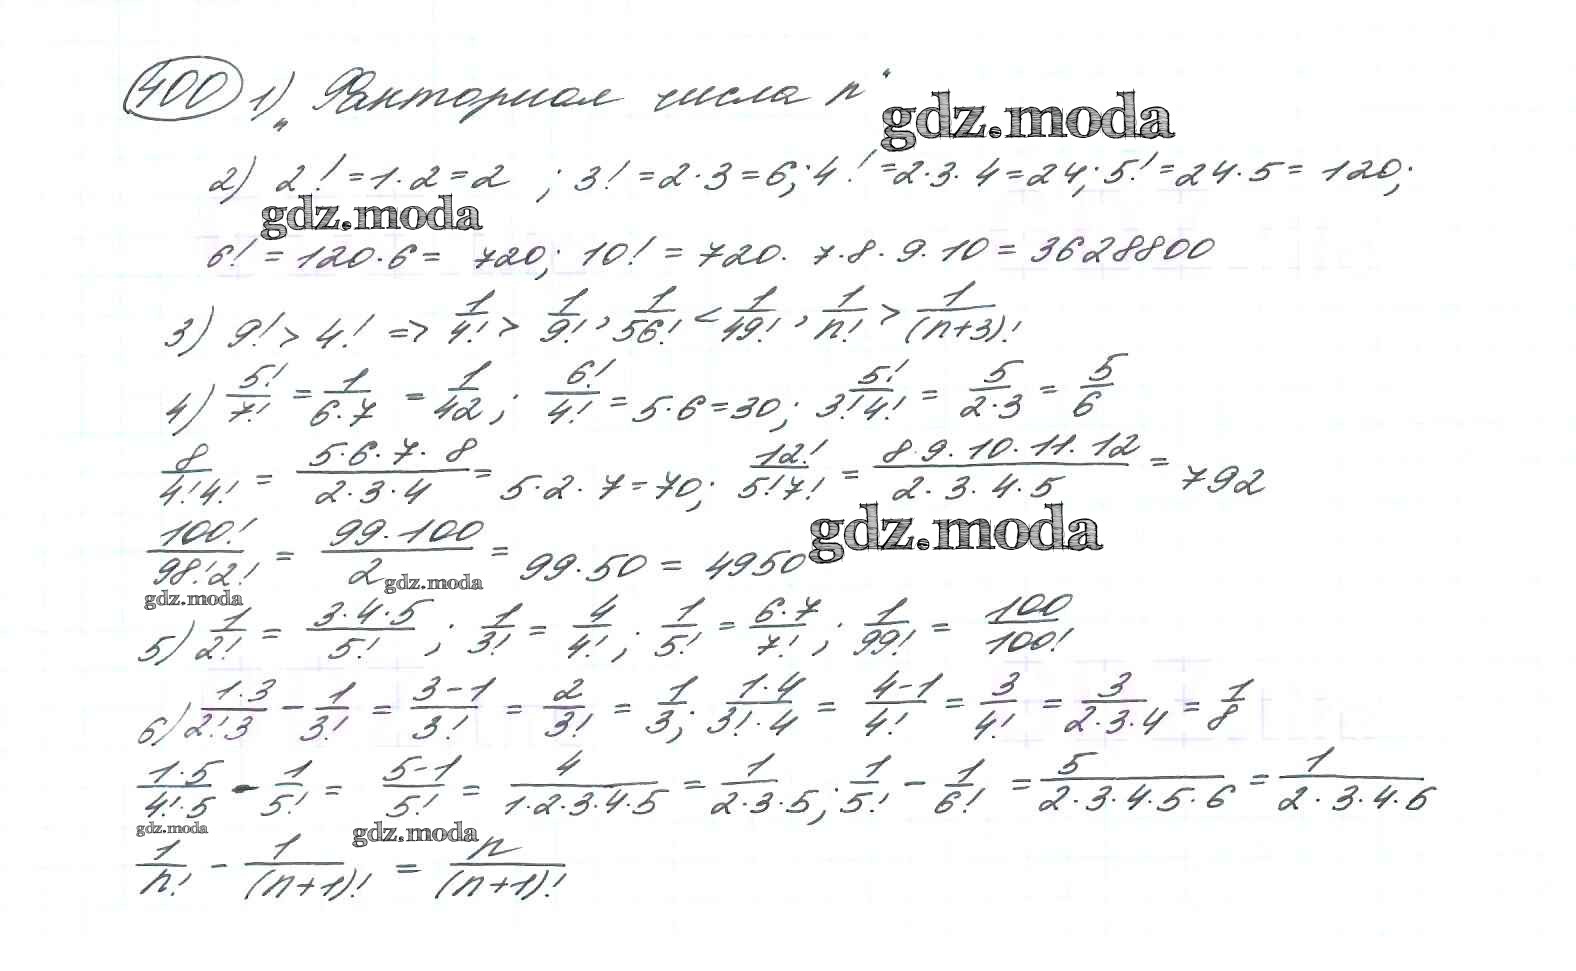 400 1) „Факториал числа n“
gdz.moda
2) 2! = 1·2 = 2 ; 3! = 2·3 = 6; 4! = 2·3·4 = 24; 5! = 24·5 = 120;
gdz.moda
6! = 120·6 = 720; 10! = 720·7·8·9·10 = 3628800
3) 9! > 4! => 1/4! > 1/9!, 1/56! < 1/49!, 1/n! > 1/(n+3)!
4) 5!/7! = 1/(6·7) = 1/42; 6!/4! = 5·6 = 30; 5!/(3!4!) = 5/(2·3) = 5/6
8/(4!4!) = (5·6·7·8)/(2·3·4) = 5·2·7 = 70; 12!/(5!7!) = (8·9·10·11·12)/(2·3·4·5) = 792
100!/(98!2!) = (99·100)/2 = 99·50 = 4950
gdz.moda
gdz.moda
gdz.moda
5) 1/2! = (3·4·5)/5! ; 1/3! = 4/4! ; 1/5! = (6·7)/7! ; 1/99! = 100/100!
6) (1·3)/(2!·3) - 1/3! = (3-1)/3! = 2/3! = 1/3; (1·4)/(3!·4) = (4-1)/4! = 3/4! = 3/(2·3·4) = 1/8
(1·5)/(4!·5) - 1/5! = (5-1)/5! = 4/(1·2·3·4·5) = 1/(2·3·5); 1/5! - 1/6! = 5/(2·3·4·5·6) = 1/(2·3·4·6)
gdz.moda
gdz.moda
1/n! - 1/(n+1)! = n/(n+1)!